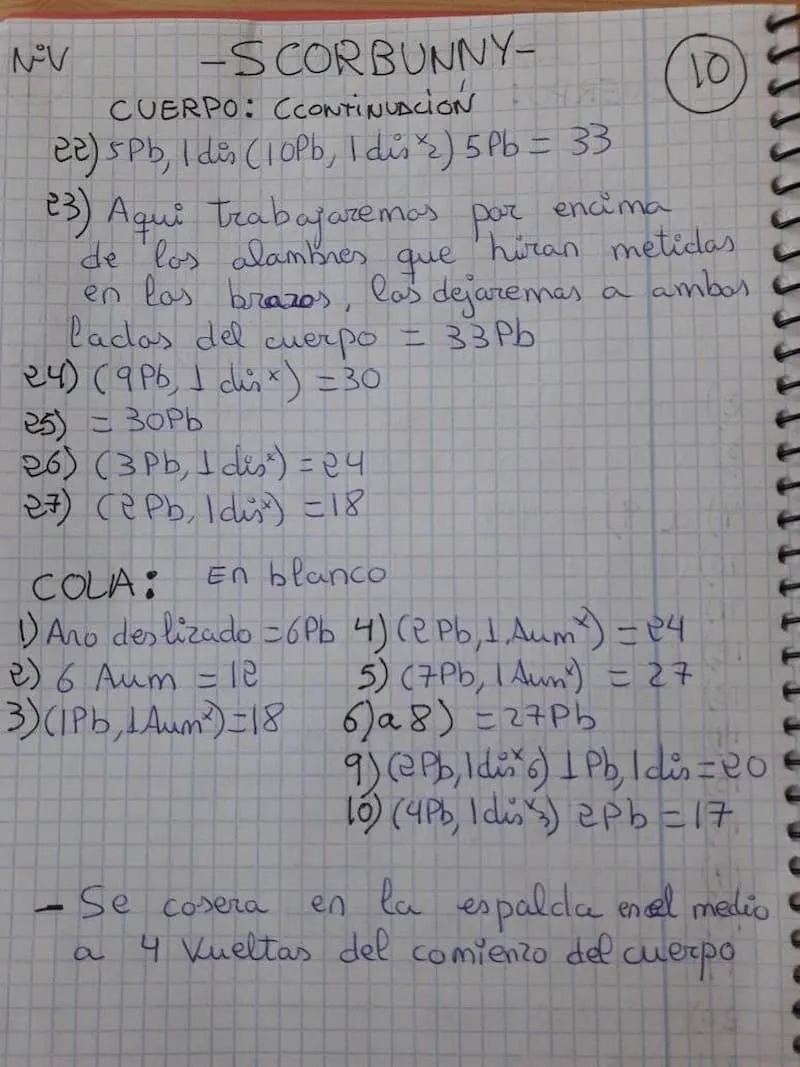 NiV -SCORBUNNY- 10
CUERPO: (CONTINUACIÓN
22) 5Pb, 1 dis (10Pb, 1 dis x2) 5Pb = 33
23) Aqui trabajaremos por encima
de los alambres que hiran metidas
en los brazos, los dejaremos a ambos
lados del cuerpo = 33Pb
24) (9Pb, 1 dis x) = 30
25) = 30Pb
26) (3Pb, 1 dis x) = 24
27) (2Pb, 1 dis x) = 18
COLA: En blanco
1) Aro deslizado = 6Pb
2) 6 Aum = 12
3) (1Pb, 1 Aum x) = 18
4) (2Pb, 1 Aum x) = 24
5) (7Pb, 1 Aum x) = 27
6) a 8) = 27Pb
9) (2Pb, 1 dis x6) 1Pb, 1 dis = 20
10) (4Pb, 1 dis x3) 2Pb = 17
- Se cosera en la espalda en el medio
a 4 vueltas del comienzo del cuerpo